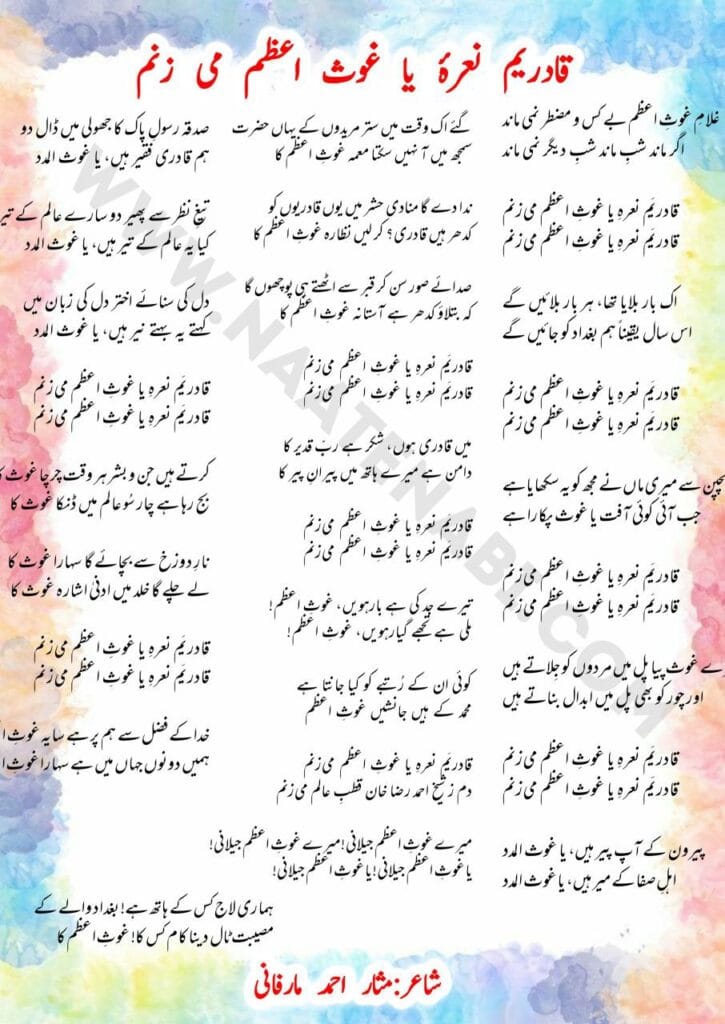 قادریم نعرۂ یا غوث اعظم می زنم
غلامِ غوثِ اعظم بے کس و مضطر نمی ماند
اگر ماند شبِ ماند شبِ دیگر نمی ماند
قادریَم نعرہِ یا غوثِ اعظم می زنم
قادریَم نعرہِ یا غوثِ اعظم می زنم
اک بار بلایا تھا، ہر بار بلائیں گے
اس سال یقیناً ہم بغداد کو جائیں گے
قادریَم نعرہِ یا غوثِ اعظم می زنم
قادریَم نعرہِ یا غوثِ اعظم می زنم
بچپن سے میری ماں نے مجھ کو یہ سکھایا ہے
جب آئی کوئی آفت یا غوث پکارا ہے
قادریَم نعرہِ یا غوثِ اعظم می زنم
قادریَم نعرہِ یا غوثِ اعظم می زنم
رے غوث پیا پل میں مردوں کو جِلاتے ہیں
اور چور کو بھی پل میں ابدال بناتے ہیں
قادریَم نعرہِ یا غوثِ اعظم می زنم
قادریَم نعرہِ یا غوثِ اعظم می زنم
پیرون کے آپ پیر ہیں، یا غوث المدد
اہلِ صفا کے میر ہیں، یا غوث المدد
گئے اک وقت میں ستر مریدوں کے یہاں حضرت
سمجھ میں آ نہیں سکتا معمہ غوثِ اعظم کا
ندا دے گا منادی حشر میں یوں قادریوں کو
کدھر ہیں قادری؟ کر لیں نظارہ غوثِ اعظم کا
صدائے صور سن کر قبر سے اٹھتے ہی پوچھوں گا
کہ بتلاؤ کدھر ہے آستانہ غوثِ اعظم کا
قادریَم نعرہِ یا غوثِ اعظم می زنم
قادریَم نعرہِ یا غوثِ اعظم می زنم
میں قادری ہوں، شکر ہے ربِ قدیر کا
دامن ہے میرے ہاتھ میں پیرانِ پیر کا
قادریَم نعرہِ یا غوثِ اعظم می زنم
قادریَم نعرہِ یا غوثِ اعظم می زنم
تیرے جد کی ہے بارہویں، غوثِ اعظم!
ملی ہے تجھے گیارہویں، غوثِ اعظم!
کوئی ان کے رُتبے کو کیا جانتا ہے
محمد کے ہیں جانشیں غوثِ اعظم
قادریَم نعرہِ یا غوثِ اعظم می زنم
دم ز شیخ احمد رضا خان قطبِ عالم می زنم
میرے غوثِ اعظم جیلانی! میرے غوثِ اعظم جیلانی!
یا غوثِ اعظم جیلانی! یا غوثِ اعظم جیلانی!
ہماری لاج کس کے ہاتھ ہے! بغداد والے کے
مصیبت ٹال دینا کام کس کا! غوثِ اعظم کا
صدقہ رسولِ پاک کا جھولی میں ڈال دو
ہم قادری فقیر ہیں، یا غوث المدد
تیغِ نظر سے پھیر دو سارے عالم کے تیر
کیا یہ عالم کے تیر ہیں، یا غوث المدد
دل کی سنائے اختر دل کی زبان میں
کہتے یہ بہتے نیر ہیں، یا غوث المدد
قادریَم نعرہِ یا غوثِ اعظم می زنم
قادریَم نعرہِ یا غوثِ اعظم می زنم
کرتے ہیں جن و بشر ہر وقت چرچا غوث کا
بج رہا ہے چار سُو عالم میں ڈنکا غوث کا
نارِ دوزخ سے بچائے گا سہارا غوث کا
لے چلے گا خلد میں ادنیٰ اشارہ غوث کا
قادریَم نعرہِ یا غوثِ اعظم می زنم
قادریَم نعرہِ یا غوثِ اعظم می زنم
خدا کے فضل سے ہم پر ہے سایہ غوثِ
ہمیں دونوں جہاں میں ہے سہارا غوثِ
شاعر: مثار احمد مارفانی
WWW.NAATENABI.COM